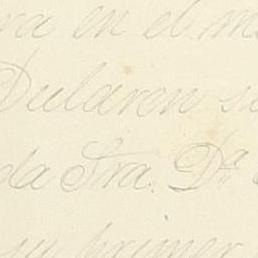 ra en el m
Dularen s
da Sra. Dª
su primer